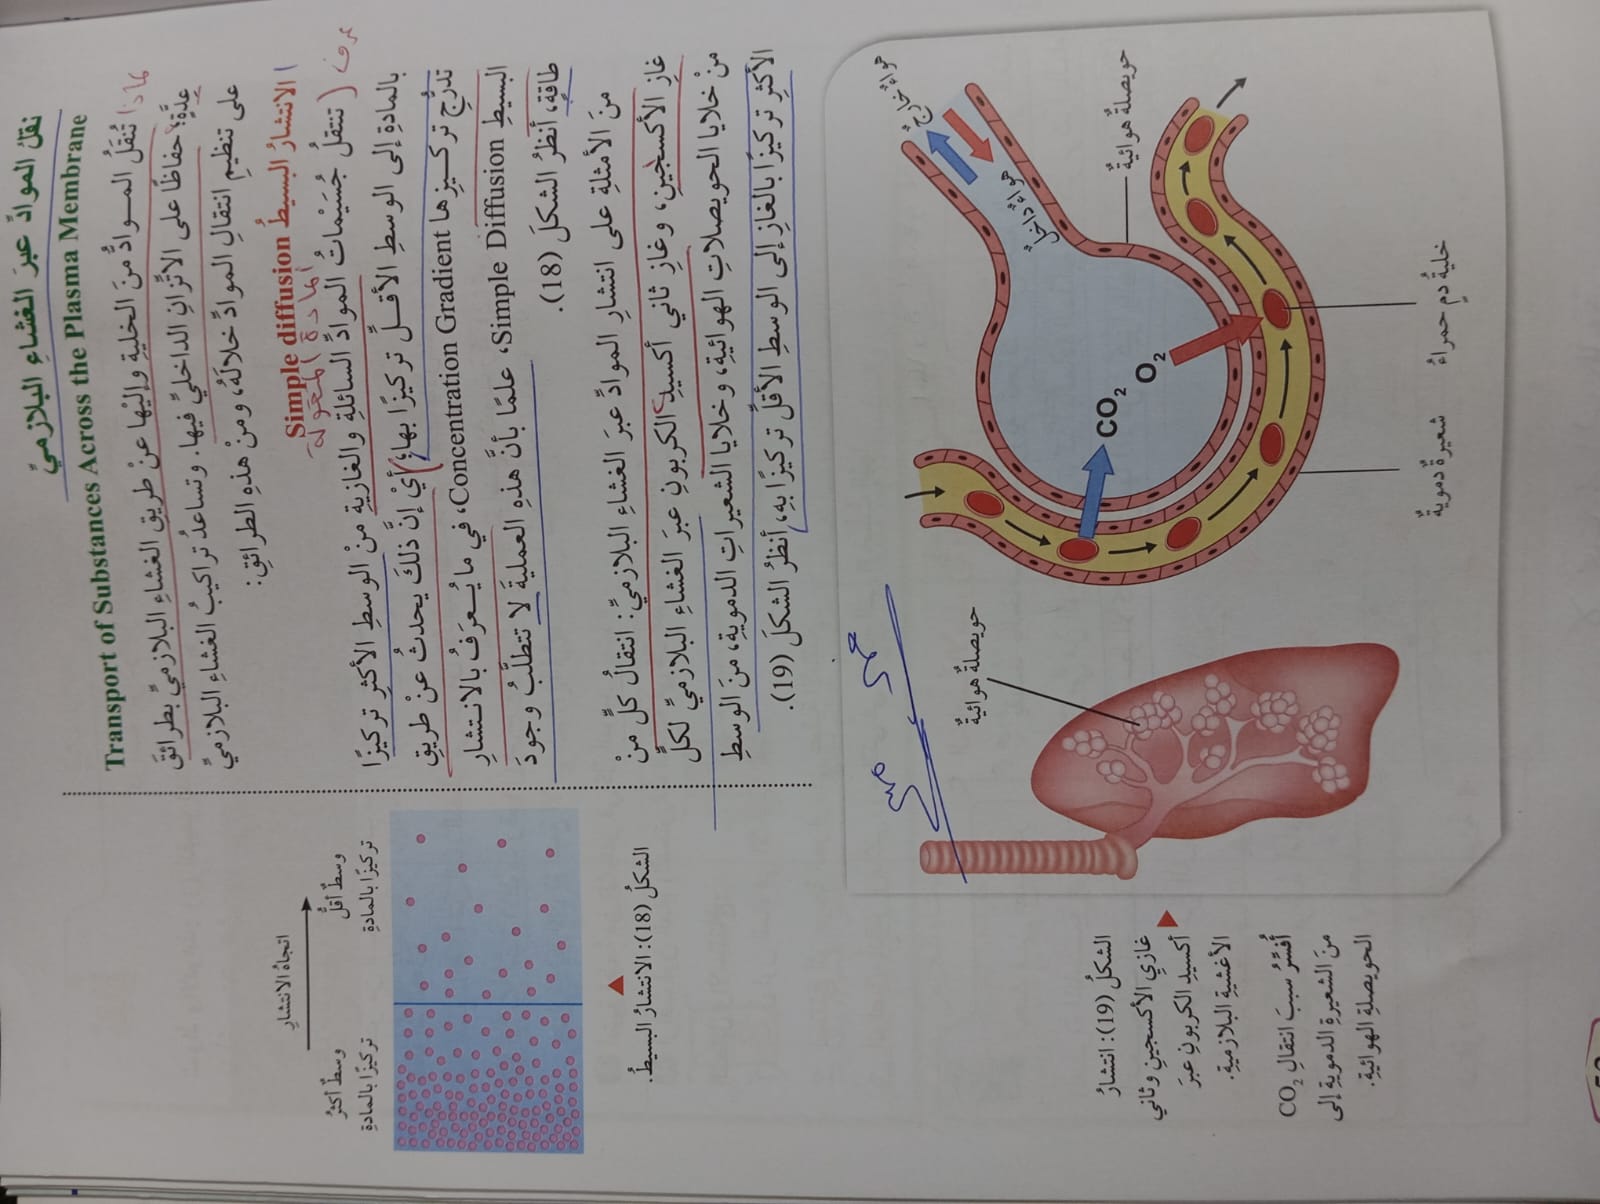 نقلُ الموادِّ عبرَ الغشاءِ البلازميِّ
Transport of Substances Across the Plasma Membrane
لماذا
تُنقَلُ المـوادُّ منَ الخليةِ وإليْها عنْ طريقِ الغشاءِ البلازميِّ بطرائقَ
عدَّةٍ؛ حفاظًا على الاتِّزانِ الداخليِّ فيها. وتساعدُ تراكيبُ الغشاءِ البلازميِّ
على تنظيمِ انتقالِ الموادِّ خلالَهُ، ومنْ هذهِ الطرائقِ:
الانتشارُ البسيطُ Simple diffusion
عرف
تنتقلُ جُسَيْماتُ الموادِّ السائلةِ والغازيةِ منَ الوسطِ الأكثرِ تركيزًا
بالمادةِ إلى الوسطِ الأقـلِّ تركيزًا بها؛ أيْ إنَّ ذلكَ يحدثُ عنْ طريقِ
تدرُّجِ تركـيزِها Concentration Gradient، في ما يُـعرَفُ بالانتشارِ
البسيطِ Simple Diffusion، علمًا بأنَّ هذهِ العمليةَ لا تتطلَّبُ وجودَ
طاقةٍ، أنظرُ الشكلَ (18).
منَ الأمثلةِ على انتشارِ الموادِّ عبرَ الغشاءِ البلازميِّ: انتقالُ كلٍّ منْ
غازِ الأكسجينِ، وغازِ ثاني أكسيدِ الكربونِ عبرَ الغشاءِ البلازميِّ لكلٍّ
منْ خلايا الحويصلاتِ الهوائيةِ، وخلايا الشعيراتِ الدمويةِ، منَ الوسطِ
الأكثرِ تركيزًا بالغازِ إلى الوسطِ الأقلِّ تركيزًا بهِ، أنظرُ الشكلَ (19).
اتجاهُ الانتشارِ
وسطٌ أكثرُ
تركيزًا بالمادةِ
وسطٌ أقلُّ
تركيزًا بالمادةِ
الشكلُ (18): الانتشارُ البسيطُ.
هواءٌ خارجٌ
هواءٌ داخلٌ
حويصلةٌ هوائيةٌ
CO2
O2
خليةُ دمٍ حمراءُ
شعيرةٌ دمويةٌ
حويصلةٌ هوائيةٌ
الشكلُ (19): انتشارُ
غازيِ الأكسجينِ وثاني
أكسيدِ الكربونِ عبرَ
الأغشيةِ البلازميةِ.
أُفسِّرُ سببَ انتقالِ CO2
منَ الشعيرةِ الدمويةِ إلى
الحويصلةِ الهوائيةِ.